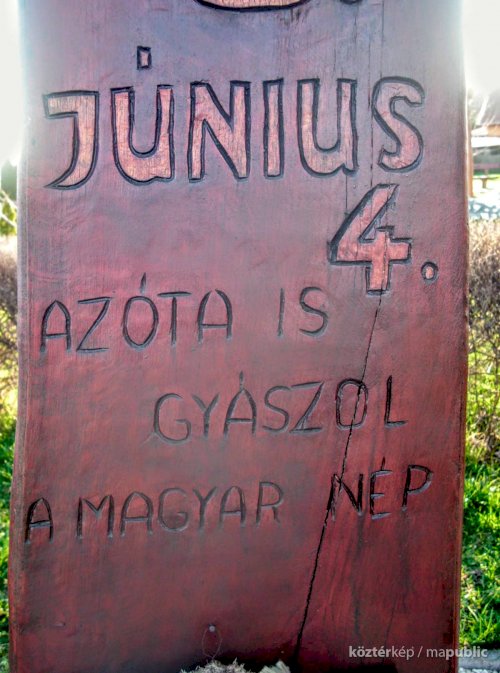 JÚNIUS
4.
AZÓTA IS
GYÁSZOL
A MAGYAR NÉP
köztérkép / mapublic